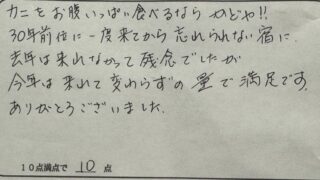 カニをお腹いっぱい食べるなら かどや!!
30年前位に一度来てから忘れられない宿に.
去年は来れなかって残念でしたが
今年は来れて変わらずの量で満足です.
ありがとうございました.
10点満点で 10 点